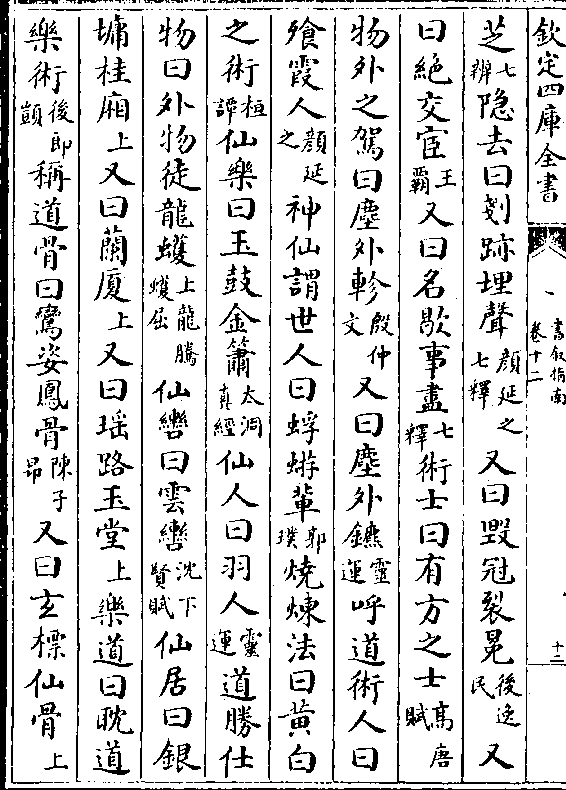 欽定四庫全書
書叙指南
卷十二
十二
芝七辨隐去曰剗跡埋聲顔延之七釋又曰毁冠裂冕後逸民又
曰絶交宦王霸又曰名歇事盡七釋術士曰有方之士髙唐賦
物外之駕曰塵外軫殷仲文又曰塵外鑣靈運呼道術人曰
飱霞人顔延之神仙謂世人曰蜉蝣輩郭璞燒煉法曰黄白
之術桓譚仙樂曰玉鼓金簫太洞真經仙人曰羽人靈運道勝仕
物曰外物徒龍蠖上龍騰蠖屈仙轡曰雲轡沈下賢賦仙居曰銀
墉桂廂上又曰蘭厦上又曰瑶路玉堂上樂道曰耽道
樂術後郎顗稱道骨曰鸞姿鳳骨陳子昂又曰玄標仙骨上